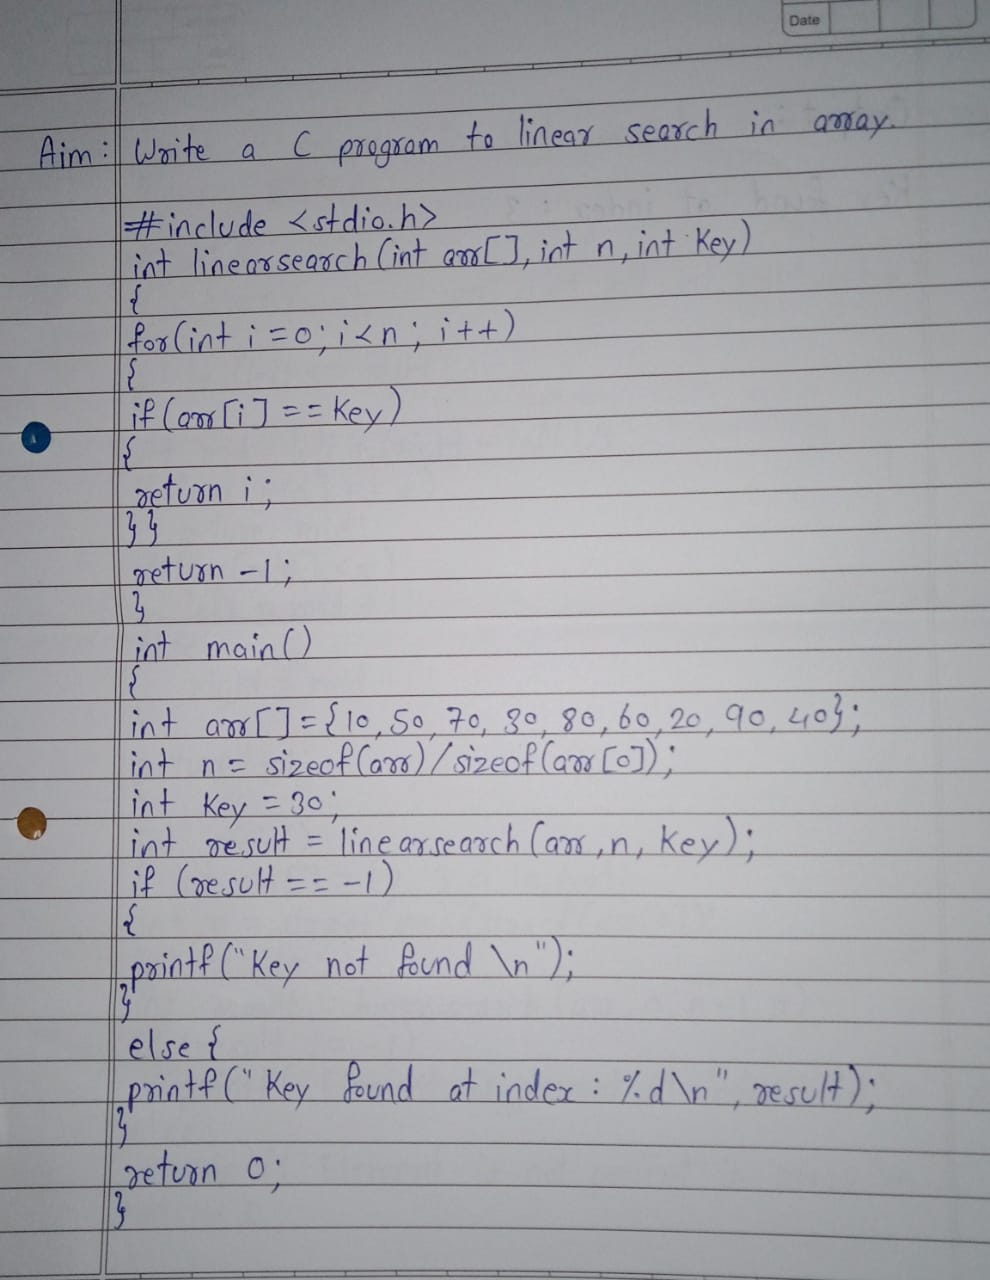 Date
Aim: Write a C program to linear search in array.
#include <stdio.h>
int linearsearch (int arr[], int n, int Key)
{
for(int i=0; i<n; i++)
{
if (arr[i] == Key)
{
return i;
}}
return -1;
}
int main()
{
int arr[]={10, 50, 70, 30, 80, 60, 20, 90, 40};
int n= sizeof(arr)/sizeof(arr[0]);
int Key = 30;
int result = linearsearch (arr, n, Key);
if (result == -1)
{
printf("Key not found \n");
}
else {
printf(" Key found at index : %d\n", result);
}
return 0;
}